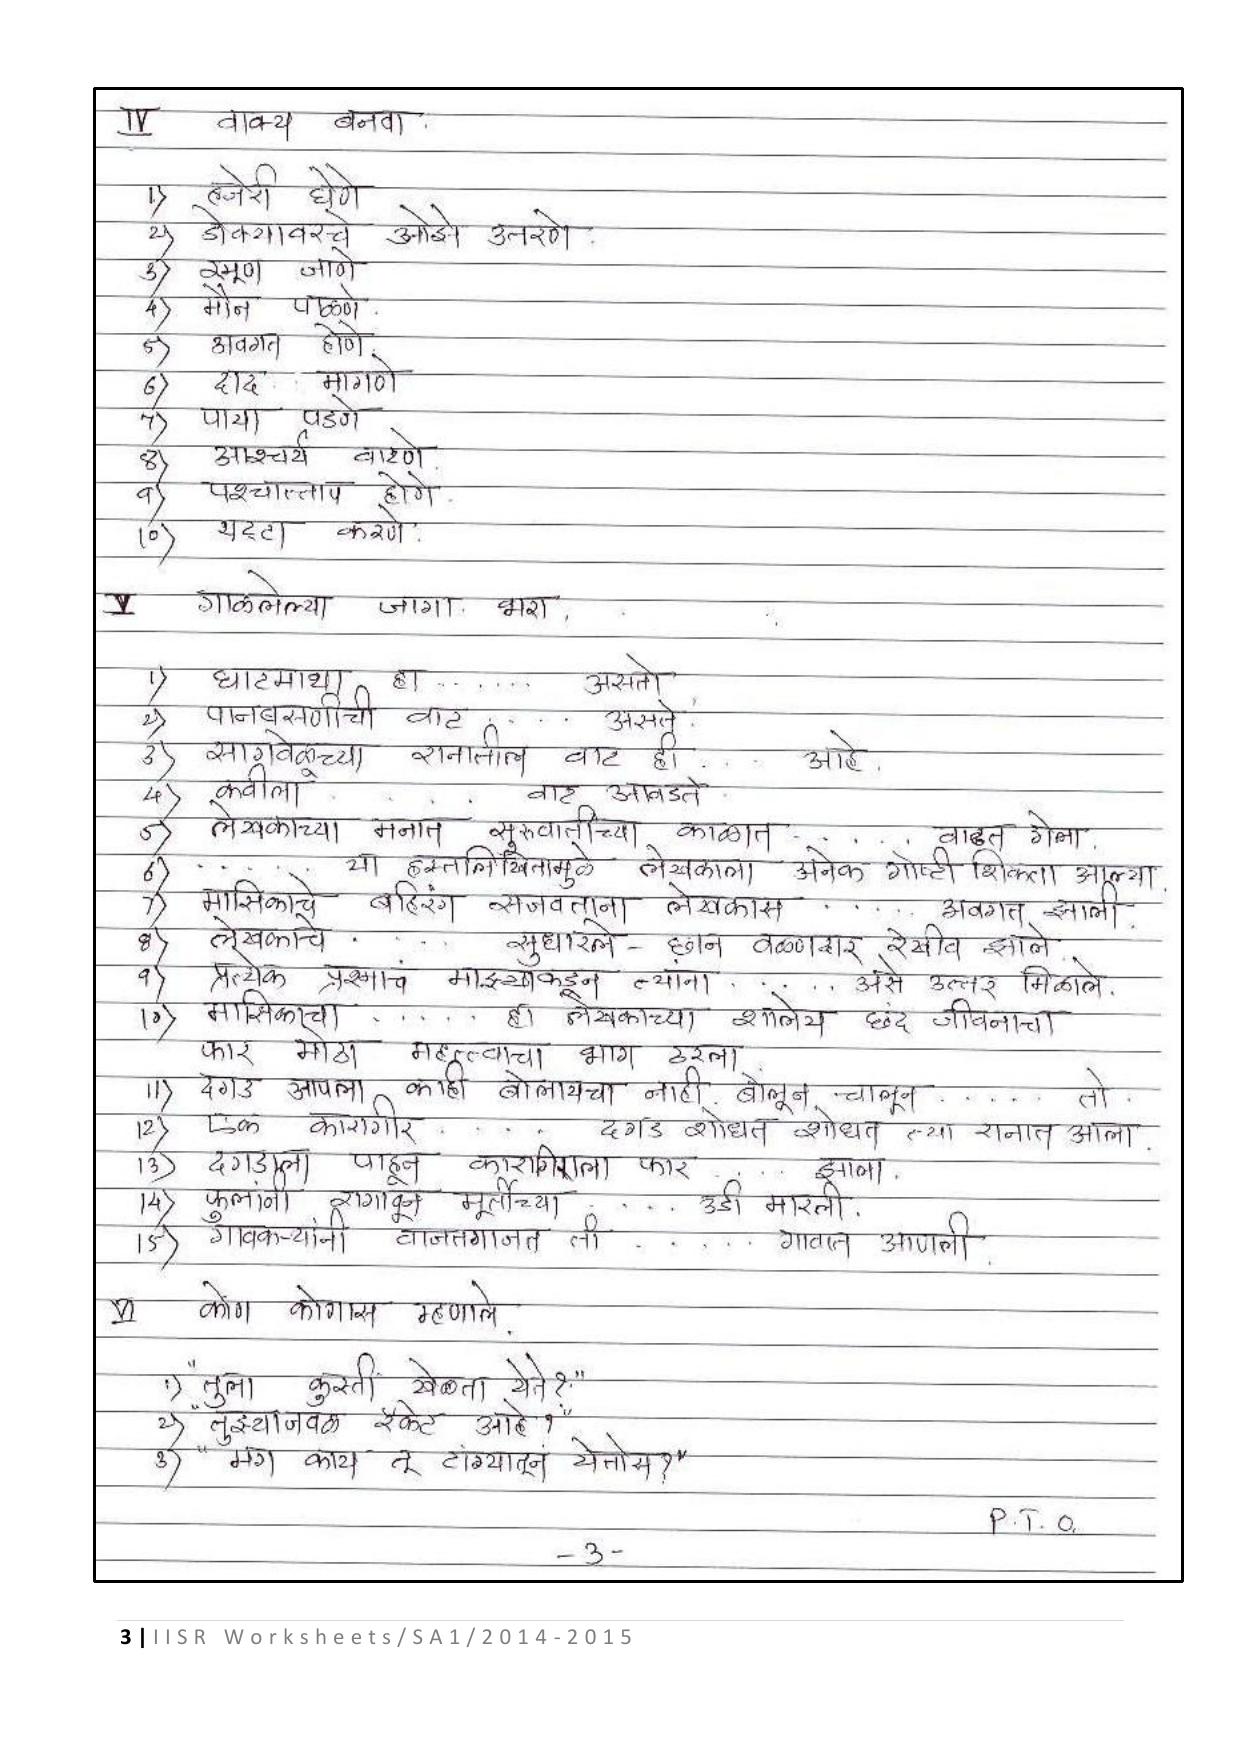 IV वाक्य बनवा.
1) हजेरी घेणे
2) डोक्यावरचे ओझे उतरणे.
3) रमून जाणे
4) मौन पाळणे.
5) अवगत होणे.
6) दाद मागणे
7) पाया पडणे
8) आश्चर्य वाटणे.
9) पश्चात्ताप होणे.
10) थट्टा करणे.
V गाळलेल्या जागा भरा.
1) घाटमाथा हा ...... असतो
2) पानबसणीची वाट ..... असते.
3) सागवेळूच्या रानातील वाट ही .... आहे.
4) कवीला ..... वाट आवडते.
5) लेखकाच्या मनात सुरुवातीच्या काळात ...... वाढत गेला.
6) ...... या हस्तलिखितामुळे लेखकाला अनेक गोष्टी शिकता आल्या.
7) मासिकाचे बहिरंग सजवताना लेखकास ..... अवगत झाली.
8) लेखकाचे ..... सुधारले - छान वळणदार रेखीव झाले.
9) प्रत्येक प्रश्नाचं माझ्याकडून त्यांना ..... असे उत्तर मिळाले.
10) मासिकाचा ..... हा लेखकाच्या शालेय छंद जीवनाचा
फार मोठा महत्त्वाचा भाग ठरला.
11) दगड आपला काही बोलायचा नाही. बोलून चालून ..... तो.
12) एक कारागीर .... दगड शोधत शोधत त्या रानात आला.
13) दगडाला पाहून कारागिराला फार .... झाला.
14) फुलांनी रागावून मूर्तीच्या .... उडी मारली.
15) गावकऱ्यांनी वाजतगाजत ती ...... गावात आणली.
VI कोण कोणास म्हणाले.
1) "तुला कुस्ती खेळता येते?"
2) "तुझ्याजवळ रॅकेट आहे?"
3) "मग काय तू टांग्यातून येतोस?"
P.T.O.
-3-
3 | IISR Worksheets/SA1/2014-2015